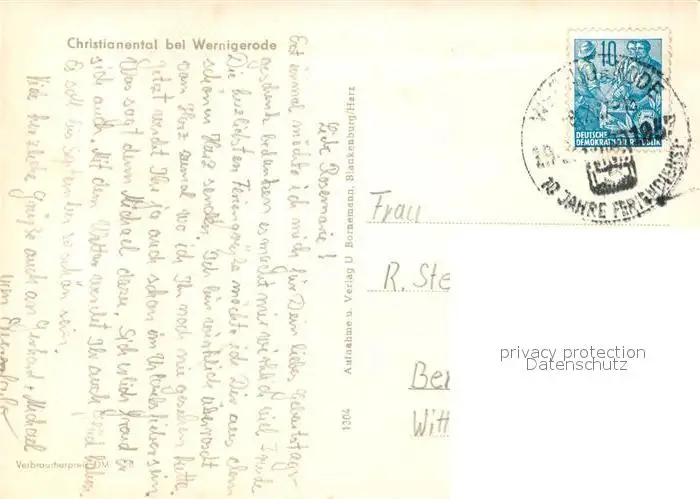 Christianental bei Wernigerode
Liebe Rosemarie!
Erst einmal möchte ich mich für Dein liebes Geburtstags-
geschenk bedanken es macht mir wirklich viel Freude
Die herzlichsten Feriengrüße möchte ich Dir aus dem
schönen Harz senden. Ich bin wirklich überrascht
vom Harz zumal wo ich ihn noch nie gesehen hatte.
Jetzt werdet Ihr ja auch schon im Urlaub sein
Was sagt denn Michael dazu.
sich auch. Mit dem Wetter werdet Ihr auch Glück haben.
Es soll im September ja so schön sein.
Viele herzliche Grüße auch an Gerhard + Michael
von
Verbraucherpreis DM
1304 Aufnahme u. Verlag U Bornemann, Blankenburg/Harz
10
DEUTSCHE
DEMOKRATISCHE REPUBLIK
10 JAHRE FERIENDIENST
Frau
R. Ste
Be
Witt
privacy protection
Datenschutz